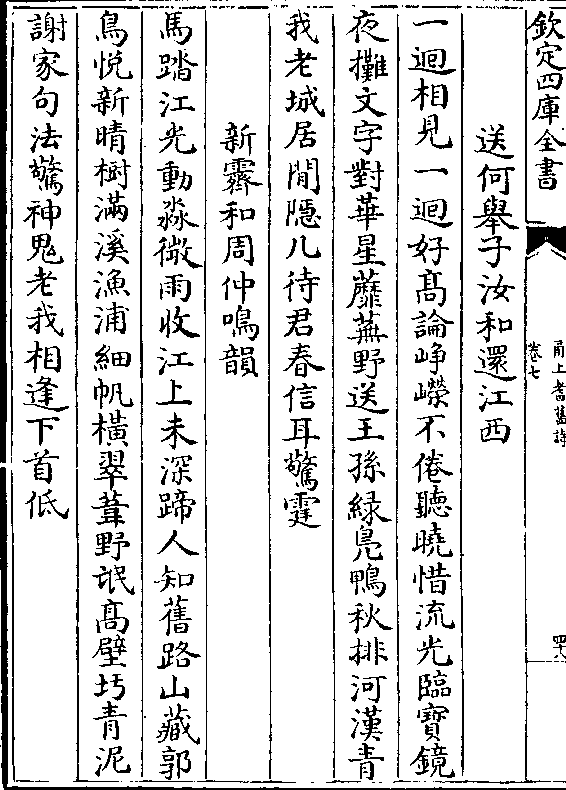 欽定四庫全書
甬上耆舊詩
卷七
四八
送何舉子汝和還江西
一迴相見一迴好髙論崢嶸不倦聽曉惜流光臨寶鏡
夜攤文字對華星蘼蕪野送王孫緑鳬鴨秋排河漢青
我老城居閒隱几待君春信耳驚霆
新霽和周仲鳴韻
馬踏江光動淼微雨收江上未深蹄人知舊路山藏郭
鳥悅新晴樹滿溪漁浦細帆横翠葦野氓髙壁圬青泥
謝家句法驚神鬼老我相逢下首低